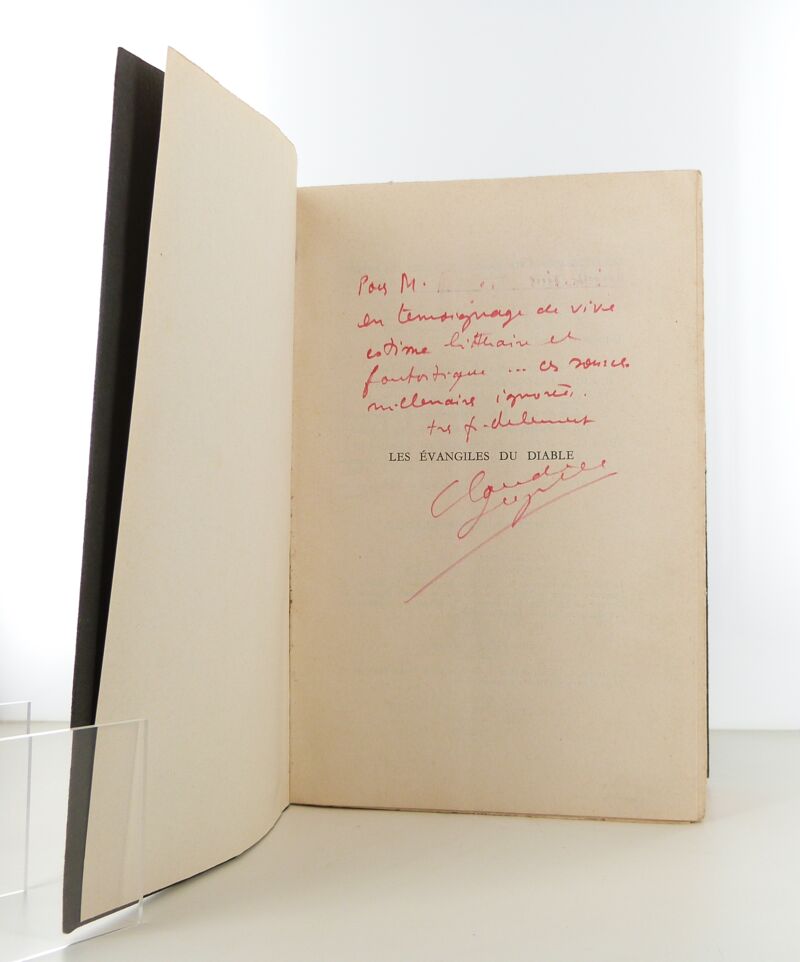 Pour M.
en témoignage de vive
estime littéraire et
fantastique ... ces sources
millénaires ignorées.
très fidèlement
LES ÉVANGILES DU DIABLE
Claude Seignolle